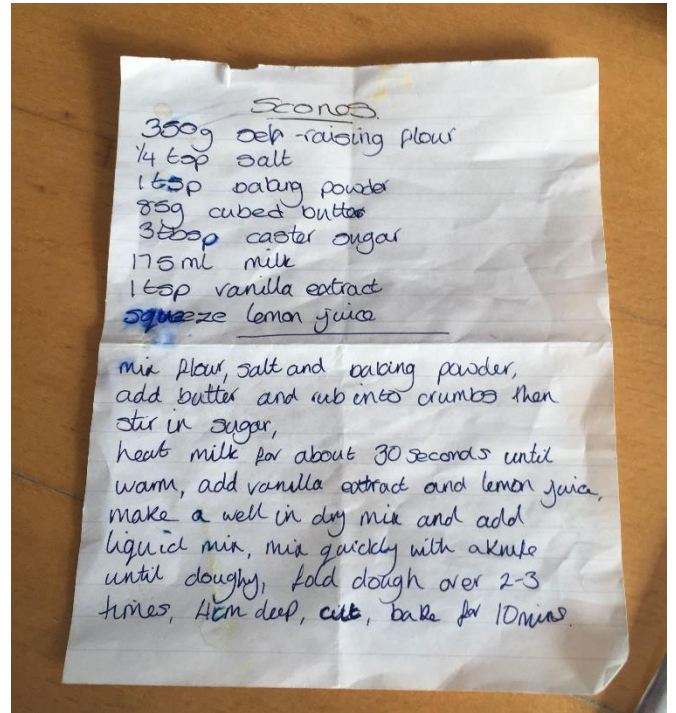 Scones.
350g self-raising flour
1/4 tsp salt
1 tsp baking powder
85g cubed butter
3tbsp caster sugar
175ml milk
1tsp vanilla extract
squeeze lemon juice
mix flour, salt and baking powder,
add butter and rub into crumbs then
stir in sugar,
heat milk for about 30 seconds until
warm, add vanilla extract and lemon juice,
make a well in dry mix and add
liquid mix, mix quickly with a knife
until doughy, fold dough over 2-3
times, 4cm deep, cut, bake for 10mins.